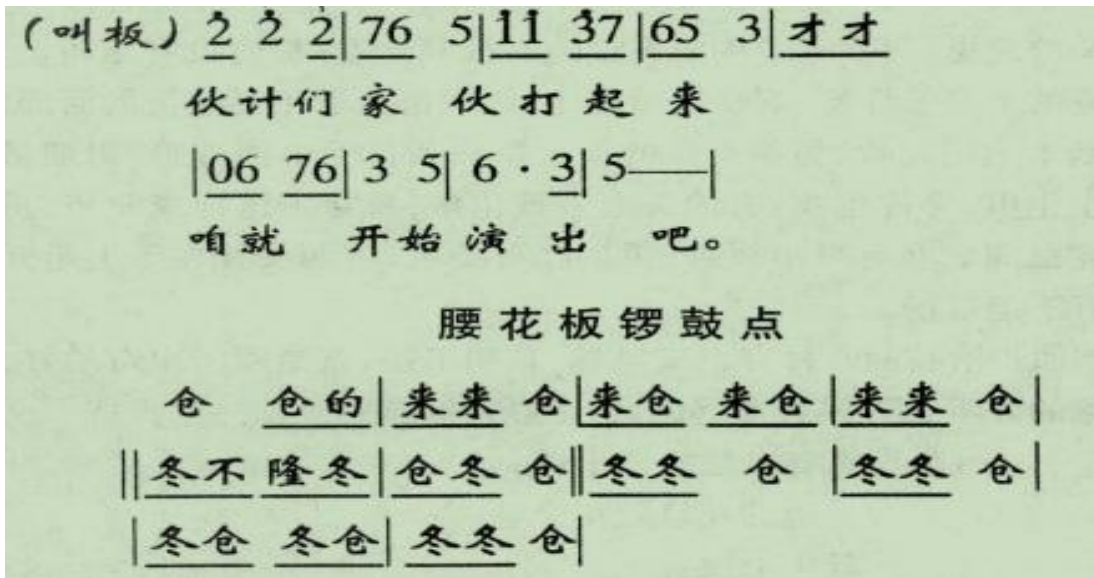 (叫板) 2̣̇ 2̇ 2̣̇|76 5|1̇1̇ 3̇7|65 3|才才
伙计们家 伙打起来
|06 76|3 5|6·3|5——|
咱就 开始演出 吧。
腰花板锣鼓点
仓 仓的|来来 仓|来仓 来仓|来来 仓|
‖冬不 隆冬|仓冬 仓‖冬冬 仓|冬冬 仓|
|冬仓 冬仓|冬冬 仓|